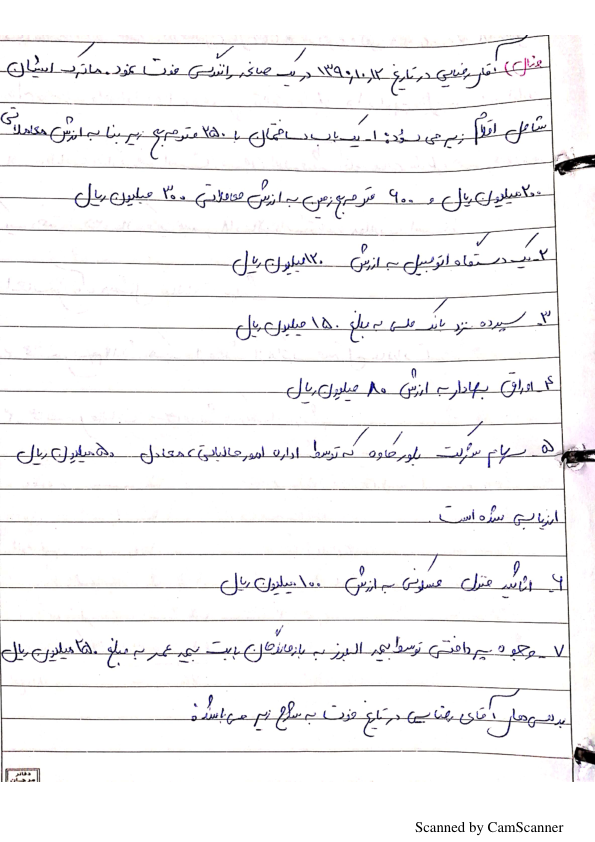 مثال) آقای رضایی در تاریخ ۱۳۹۰/۱۰/۱۲ در یک سانحه رانندگی فوت نمود. ماترک ایشان
شامل اقلام زیر می شود: ۱- یک باب ساختمان با ۲۵۰ متر مربع زیر بنا به ارزش معاملاتی
۲۰۰ میلیون ریال و ۶۰۰ متر مربع زمین به ارزش معاملاتی ۳۰۰ میلیون ریال
۲- یک دستگاه اتومبیل به ارزش ۱۲۰ میلیون ریال
۳- سپرده نزد بانک ملی به مبلغ ۱۵۰ میلیون ریال
۴- اوراق بهادار به ارزش ۸۰ میلیون ریال
۵- سهام شرکت بلور کاوه که توسط اداره امور مالیاتی، معادل ۵۰ میلیون ریال
ارزیابی شده است.
۶- اثاثیه منزل مسکونی به ارزش ۱۰۰ میلیون ریال
۷- وجوه پرداختی توسط بیمه البرز به بازماندگان بابت بیمه عمر به مبلغ ۲۵۰ میلیون ریال
بدهی های آقای رضایی در تاریخ فوت به شرح زیر می باشد:
دفاتر
مرجان
Scanned by CamScanner